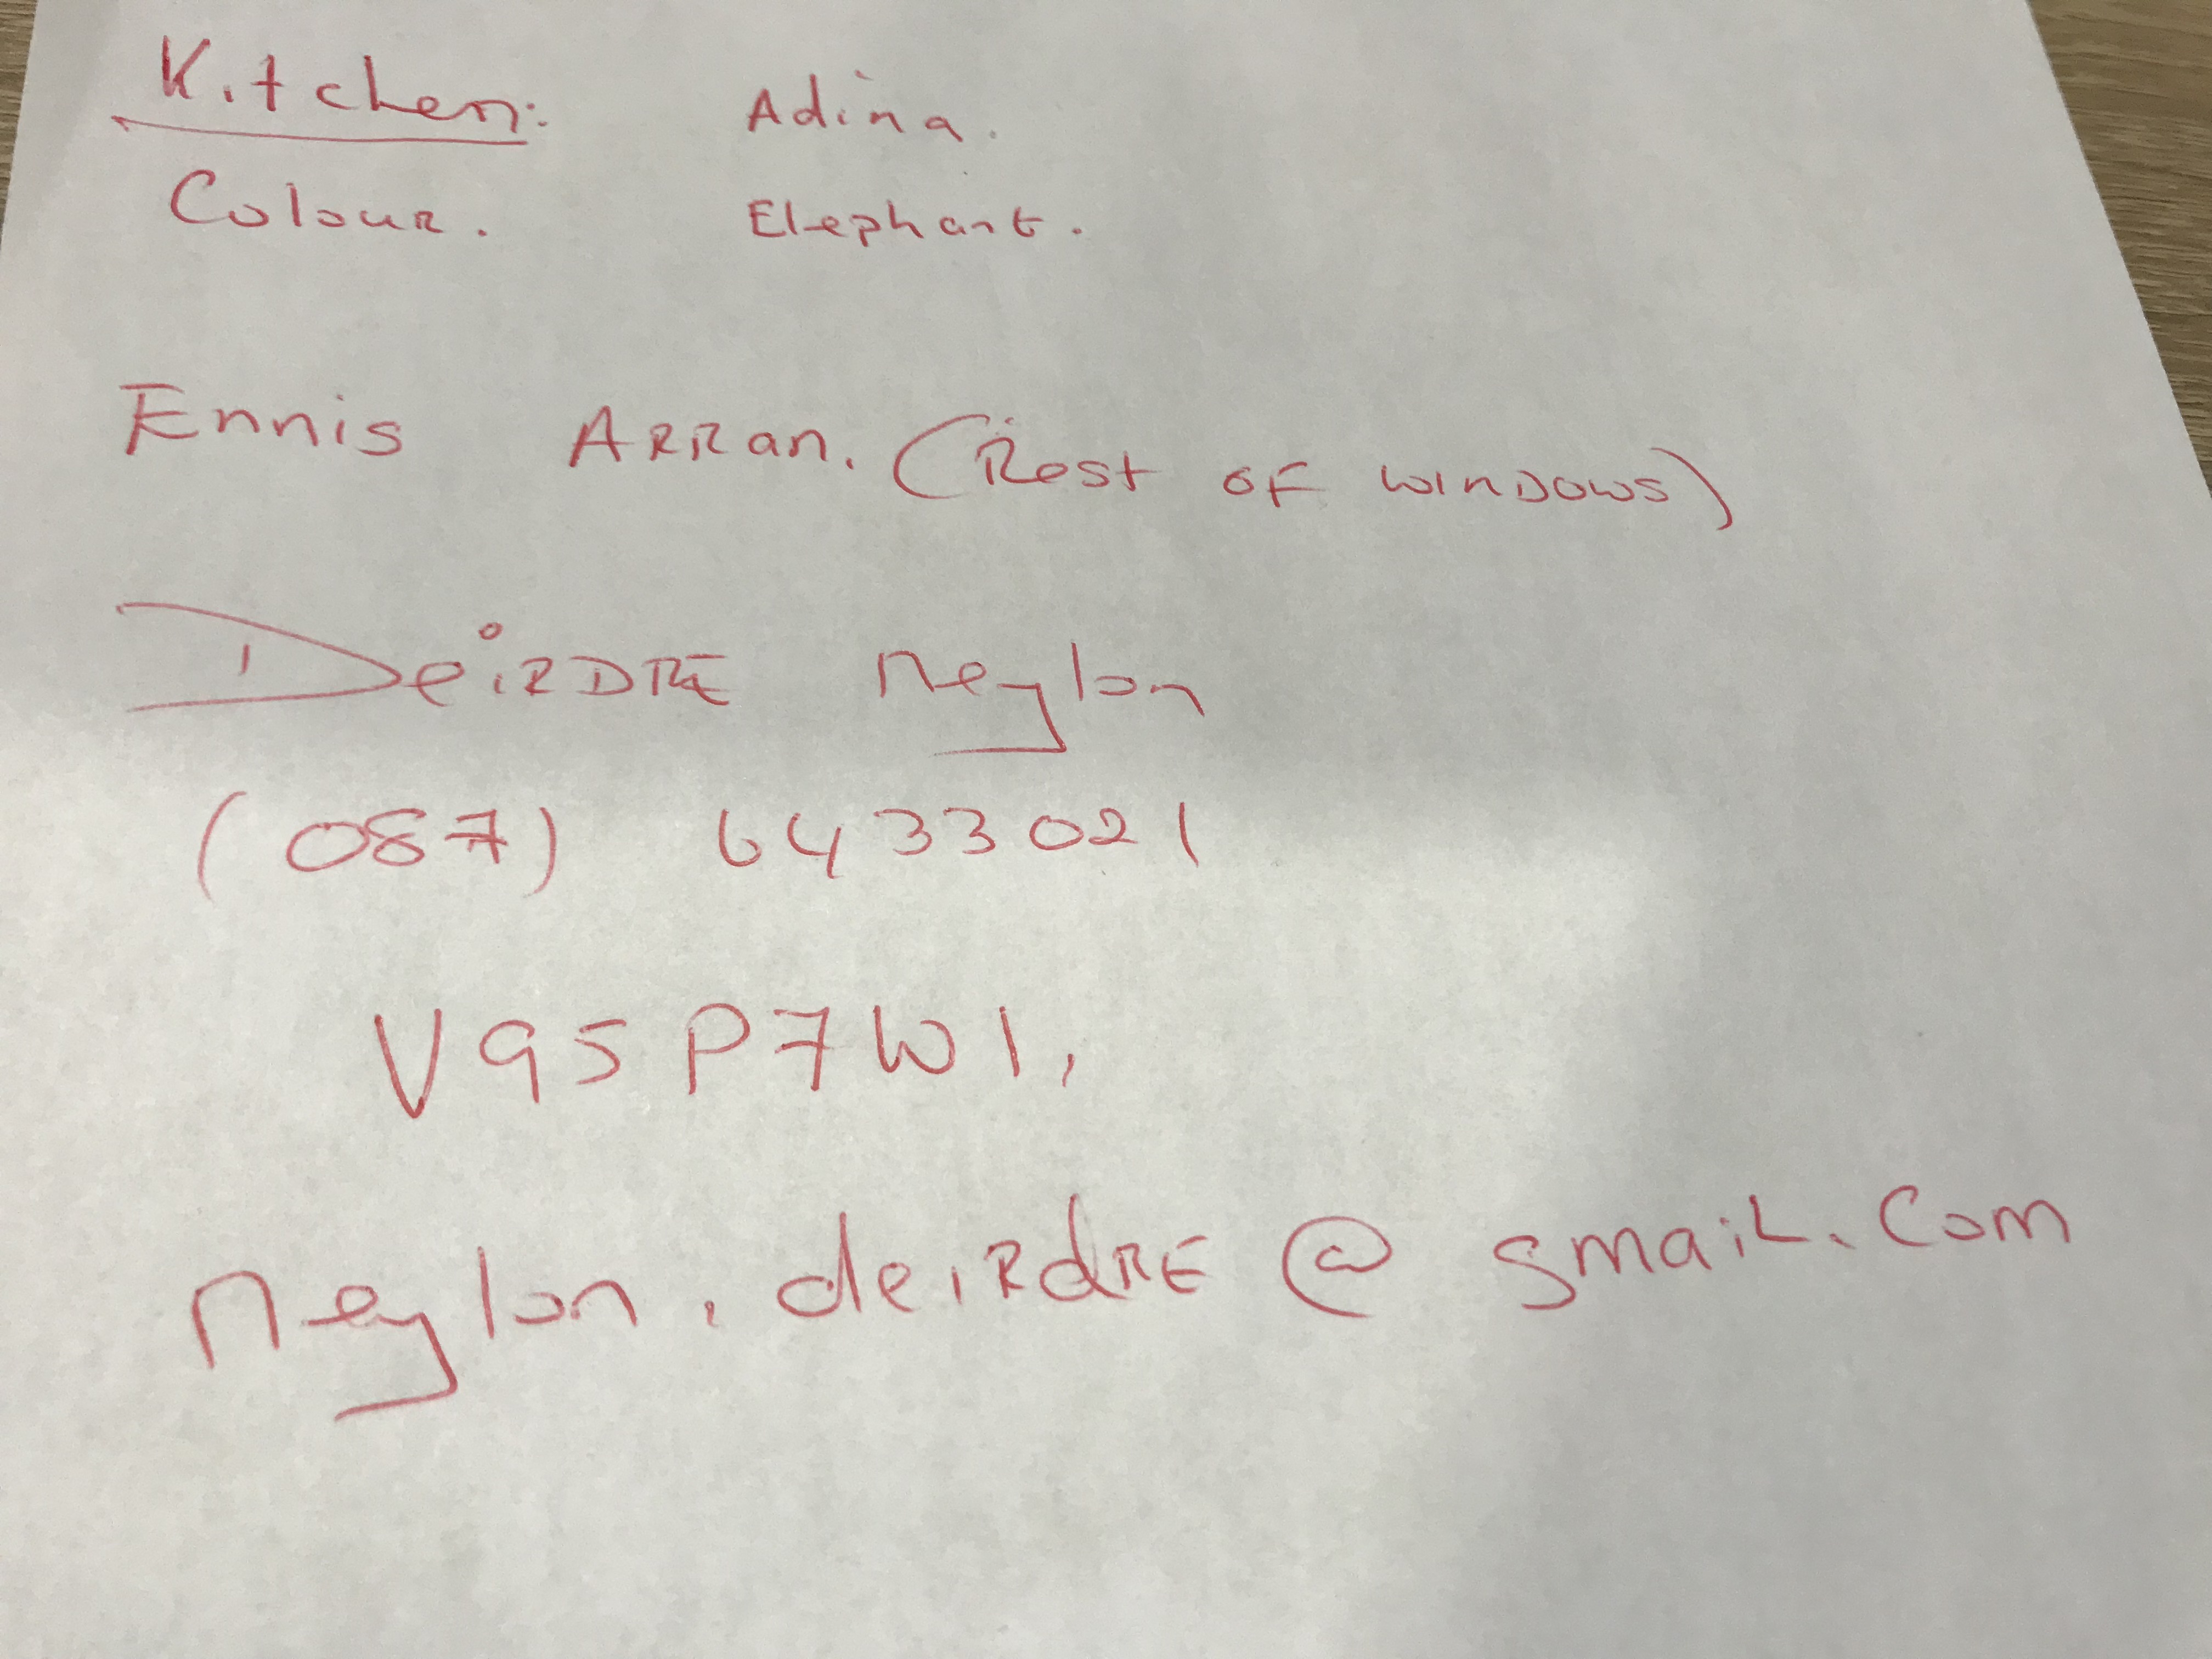 Kitchen: Adina.
Colour. Elephant.
Ennis Arran. (Rest of windows)
Deirdre Neylon
(087) 6433021
V95P7W1,
neylon.deirdre@gmail.com